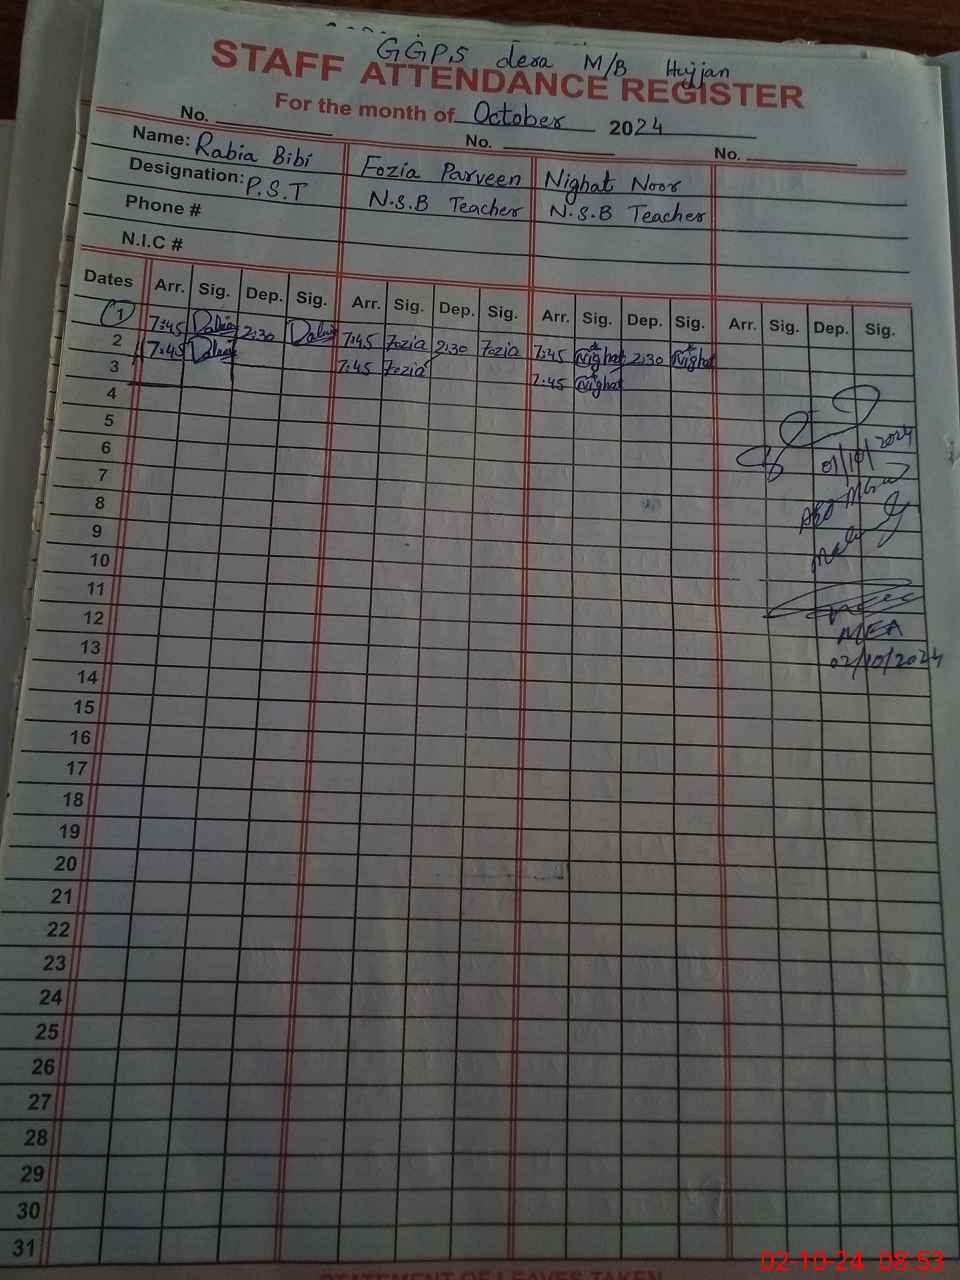 GGPS dera M/B Hujjan
STAFF ATTENDANCE REGISTER
For the month of October 2024
No. No. No.
Name: Rabia Bibi Fozia Parveen Nighat Noor
Designation: P.S.T N.S.B Teacher N.S.B Teacher
Phone #
N.I.C #
Dates Arr. Sig. Dep. Sig. Arr. Sig. Dep. Sig. Arr. Sig. Dep. Sig. Arr. Sig. Dep. Sig.
1 7:45 2:30 7:45 Fozia 2:30 Fozia 7:45 Nighat 2:30 Nighat
2 7:45 7:45 Fozia 7:45 Nighat
3
4
5
6 01/10/2024
7
8
9
10
11
12
13 MEA
14 02/10/2024
15
16
17
18
19
20
21
22
23
24
25
26
27
28
29
30
31
STATEMENT OF LEAVES TAKEN
02-10-24 08:53